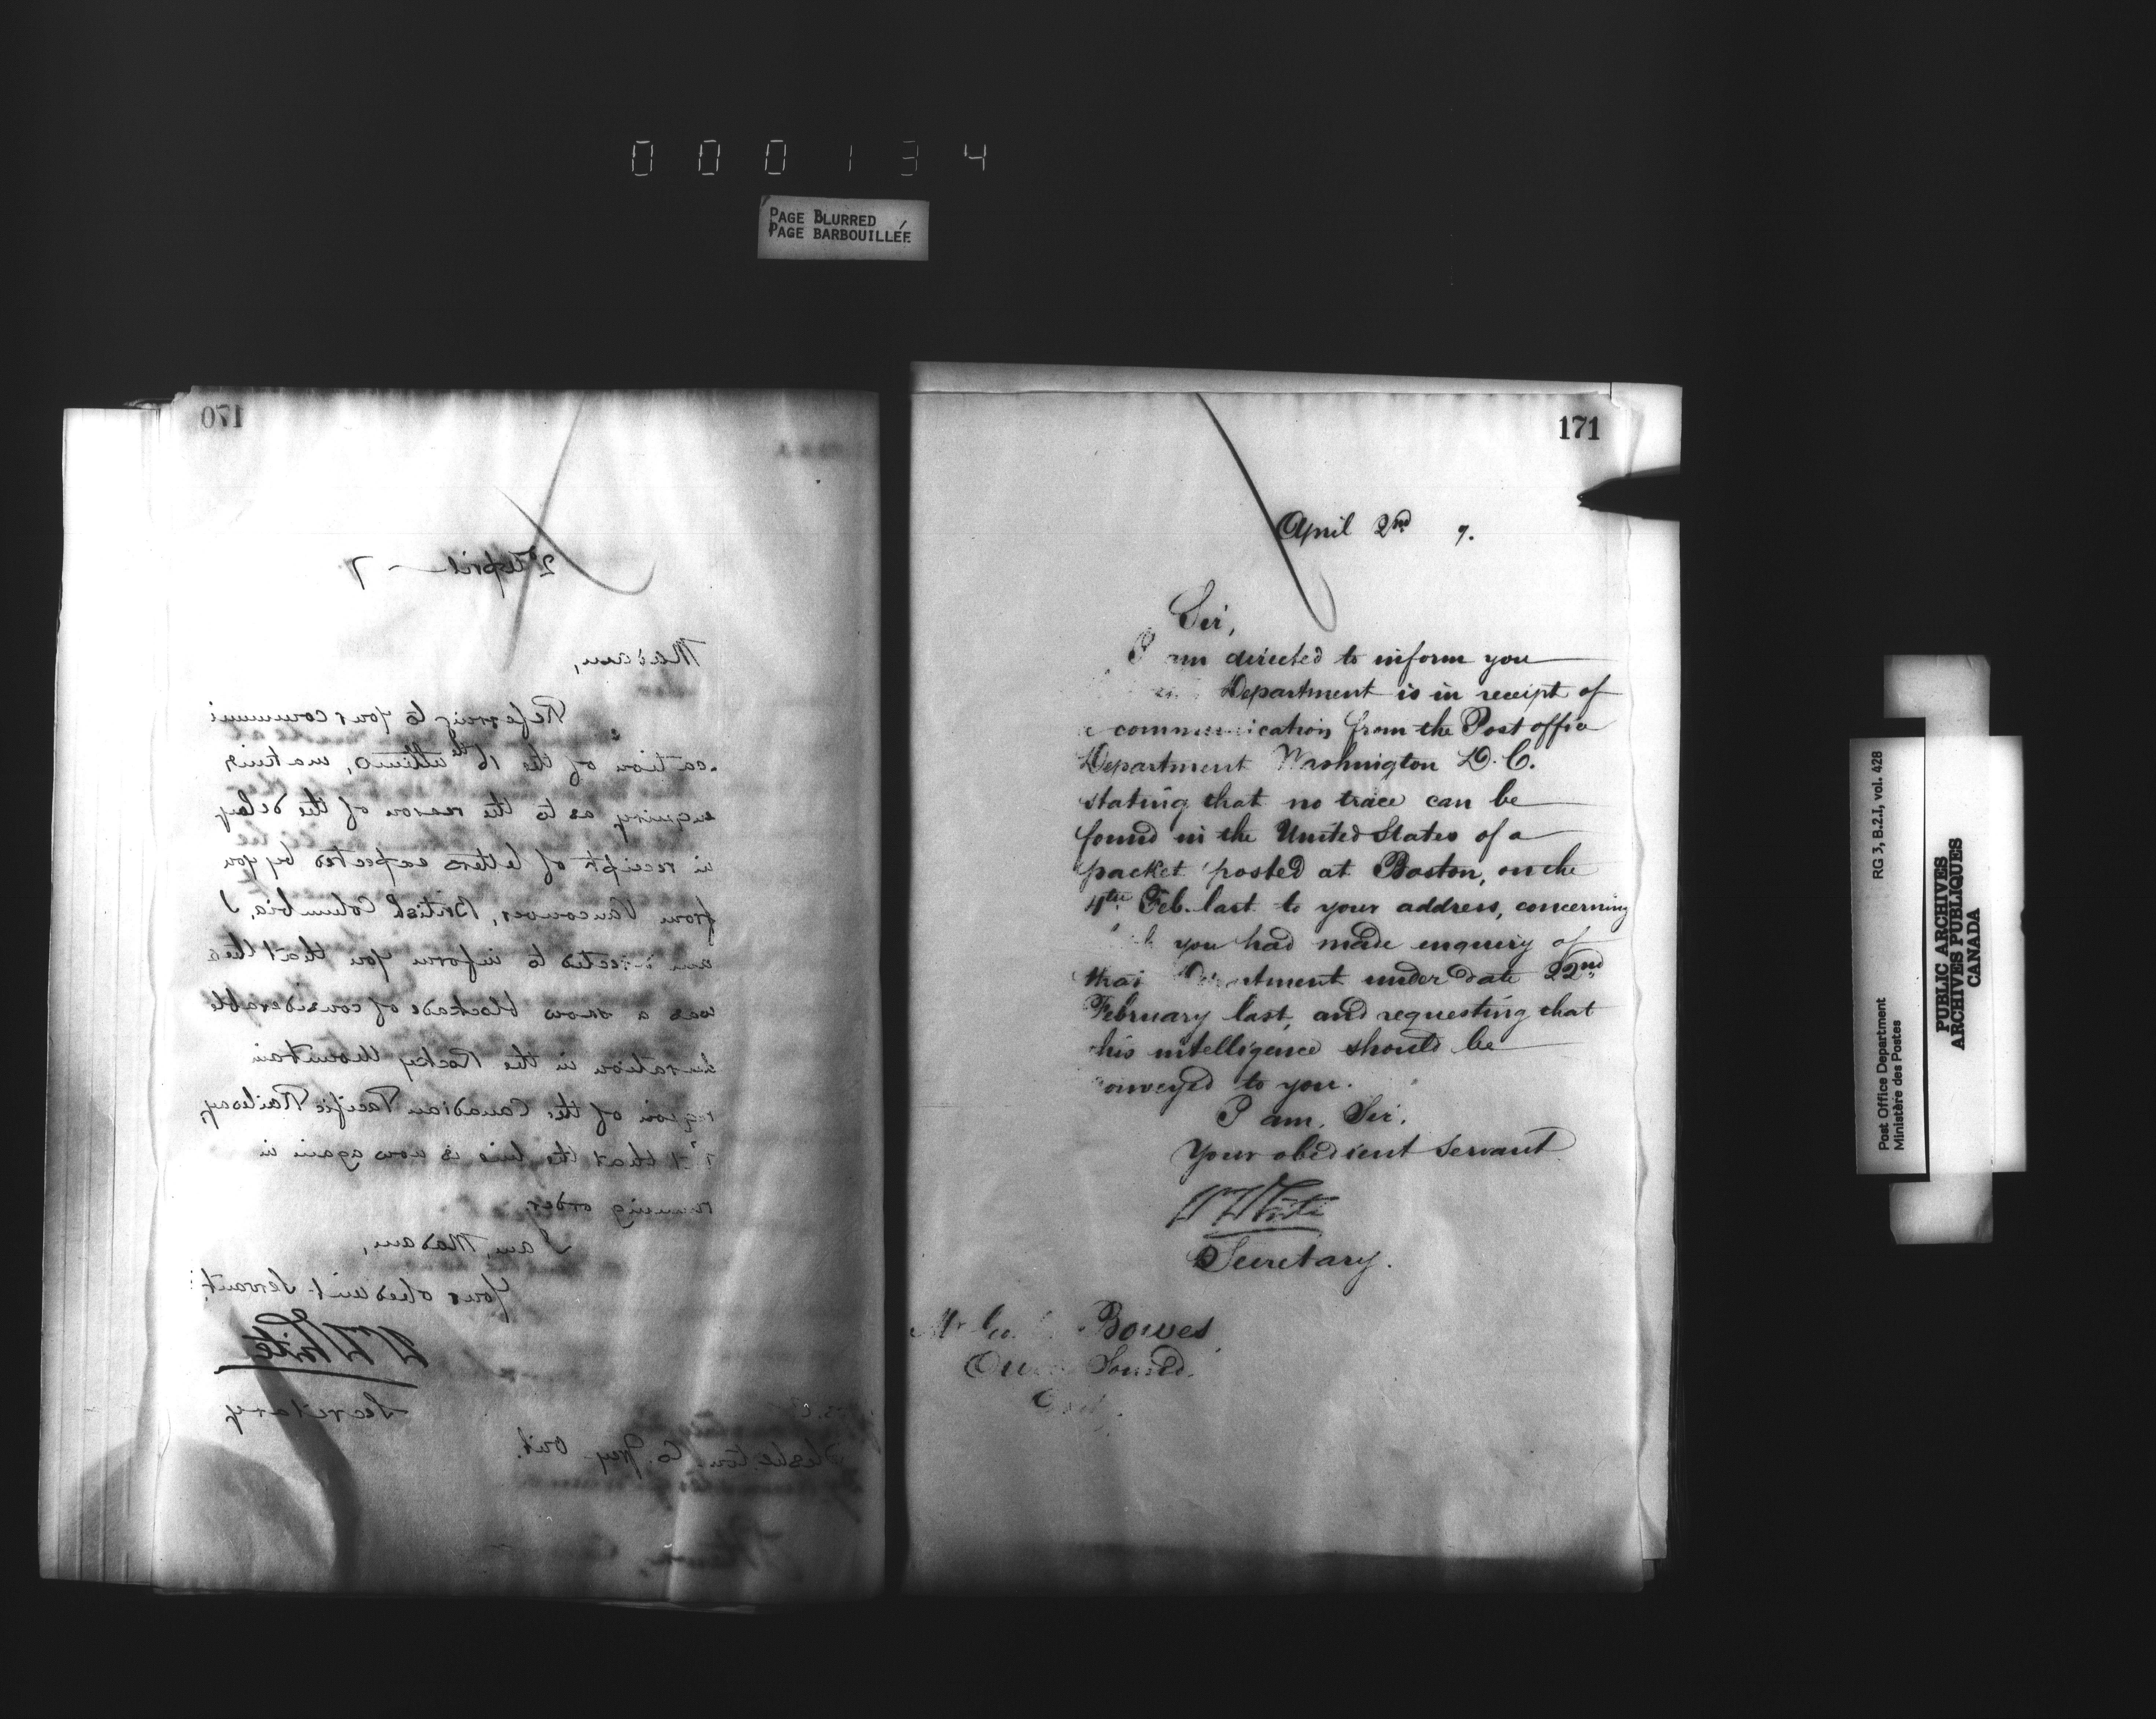 000134
PAGE BLURRED
PAGE BARBOUILLÉE
170
2nd April 7
Madam,
Referring to your communi
cation of the 16th ultimo, making
enquiry as to the reason of the delay
in receipt of letters expected by you
from Vancouver, British Columbia, I
am directed to inform you that there
was a snow blockade of considerable
duration in the Rocky Mountain
region of the Canadian Pacific Railway,
that the line is now again in
running order.
I am, Madam,
Your obedient Servant,
W White
Secretary
Co. Grey Ont.
171
April 2nd 7.
Sir,
I am directed to inform you
Department is in receipt of
a communication from the Post office
Department Washington D.C.
stating that no trace can be
found in the United States of a
packet posted at Boston, on the
4th Feb. last to your address, concerning
you had made enquiry of
that Department under date 22nd
February last, and requesting that
this intelligence should be
conveyed to you.
I am, Sir,
Your obedient Servant
W White
Secretary.
Mr Bowes,
Owen Sound,
Ont.
Post Office Department
Ministère des Postes
RG 3, B.2.I, vol. 428
PUBLIC ARCHIVES
ARCHIVES PUBLIQUES
CANADA